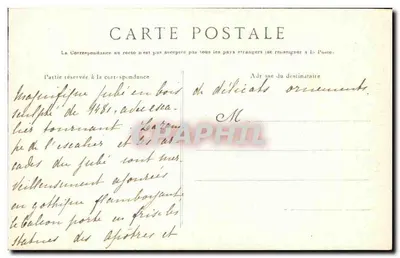 CARTE POSTALE
La Correspondance au recto n'est pas acceptée par tous les pays étrangers (se renseigner à la Poste)
Partie réservée à la correspondance
Adresse du destinataire
Magnifique jubé en bois
sculpté de 1480, avec esca
lier tournant. La ram
pe de l'escalier et les ar
cades du jubé sont mer
veilleusement ajourées
en gothique flamboyant
le balcon porte en frise les
statues des apôtres et
de délicats ornements.
M
CHAPITRE